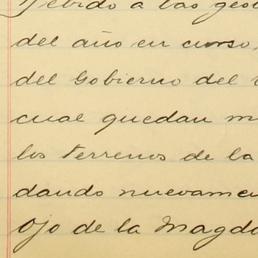 Debido a las gest
del año en curso,
del Gobierno del
cual quedan m
los terrenos de la
dando nuevamen
Ojo de la Magda